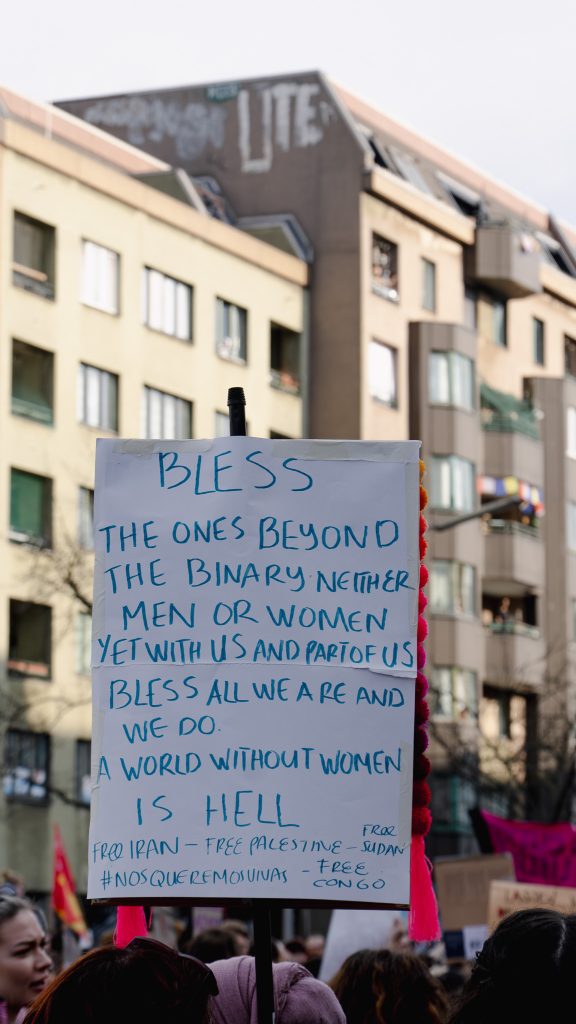 UTE
BLESS
THE ONES BEYOND
THE BINARY. NEITHER
MEN OR WOMEN
YET WITH US AND PART OF US
BLESS ALL WE ARE AND
WE DO.
A WORLD WITHOUT WOMEN
IS HELL
FREE IRAN - FREE PALESTINE - FREE SUDAN
#NOSQUEREMOSVIVAS - FREE CONGO